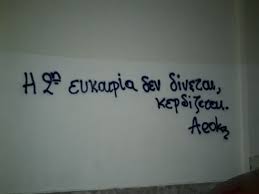 Η 2η ευκαιρία δεν δίνεται,
κερδίζεται.